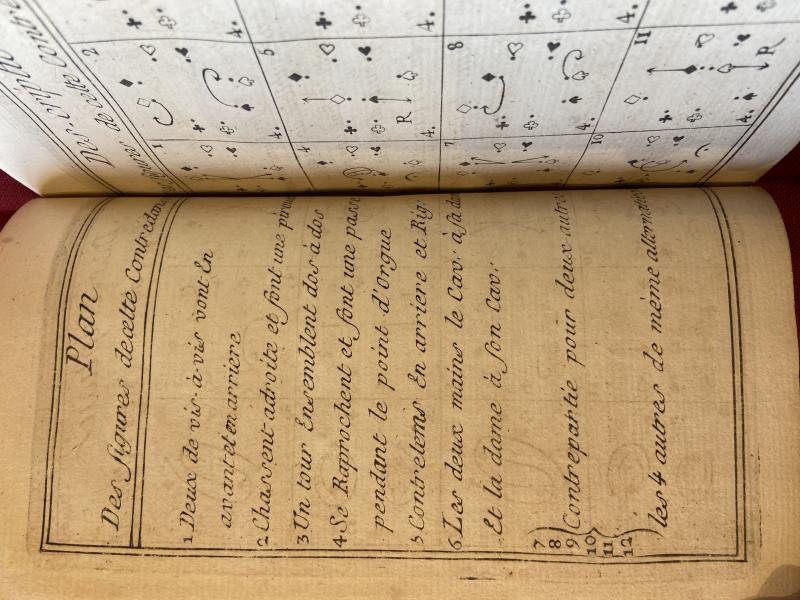 Plan
Des figures decette Contredan
1 Deux de vis-à-vis vont En
avant et en arriere
2 Chassent adroite et font une pirou
3 Un tour Ensemblent dos à dos
4 Se Raprochent et font une passe
pendant le point d'Orgue
5 Contretems En arriere et Rig
6 Les deux mains le Cav. à sa da
Et la dame à son Cav.
7
8
9 Contrepartie pour deux autr
10
11
12
les 4 autres de même alternativ
de cette Contre
1
2
4.
4
5
4.
4.
R
7
8
4.
4.
10
11
4.
R